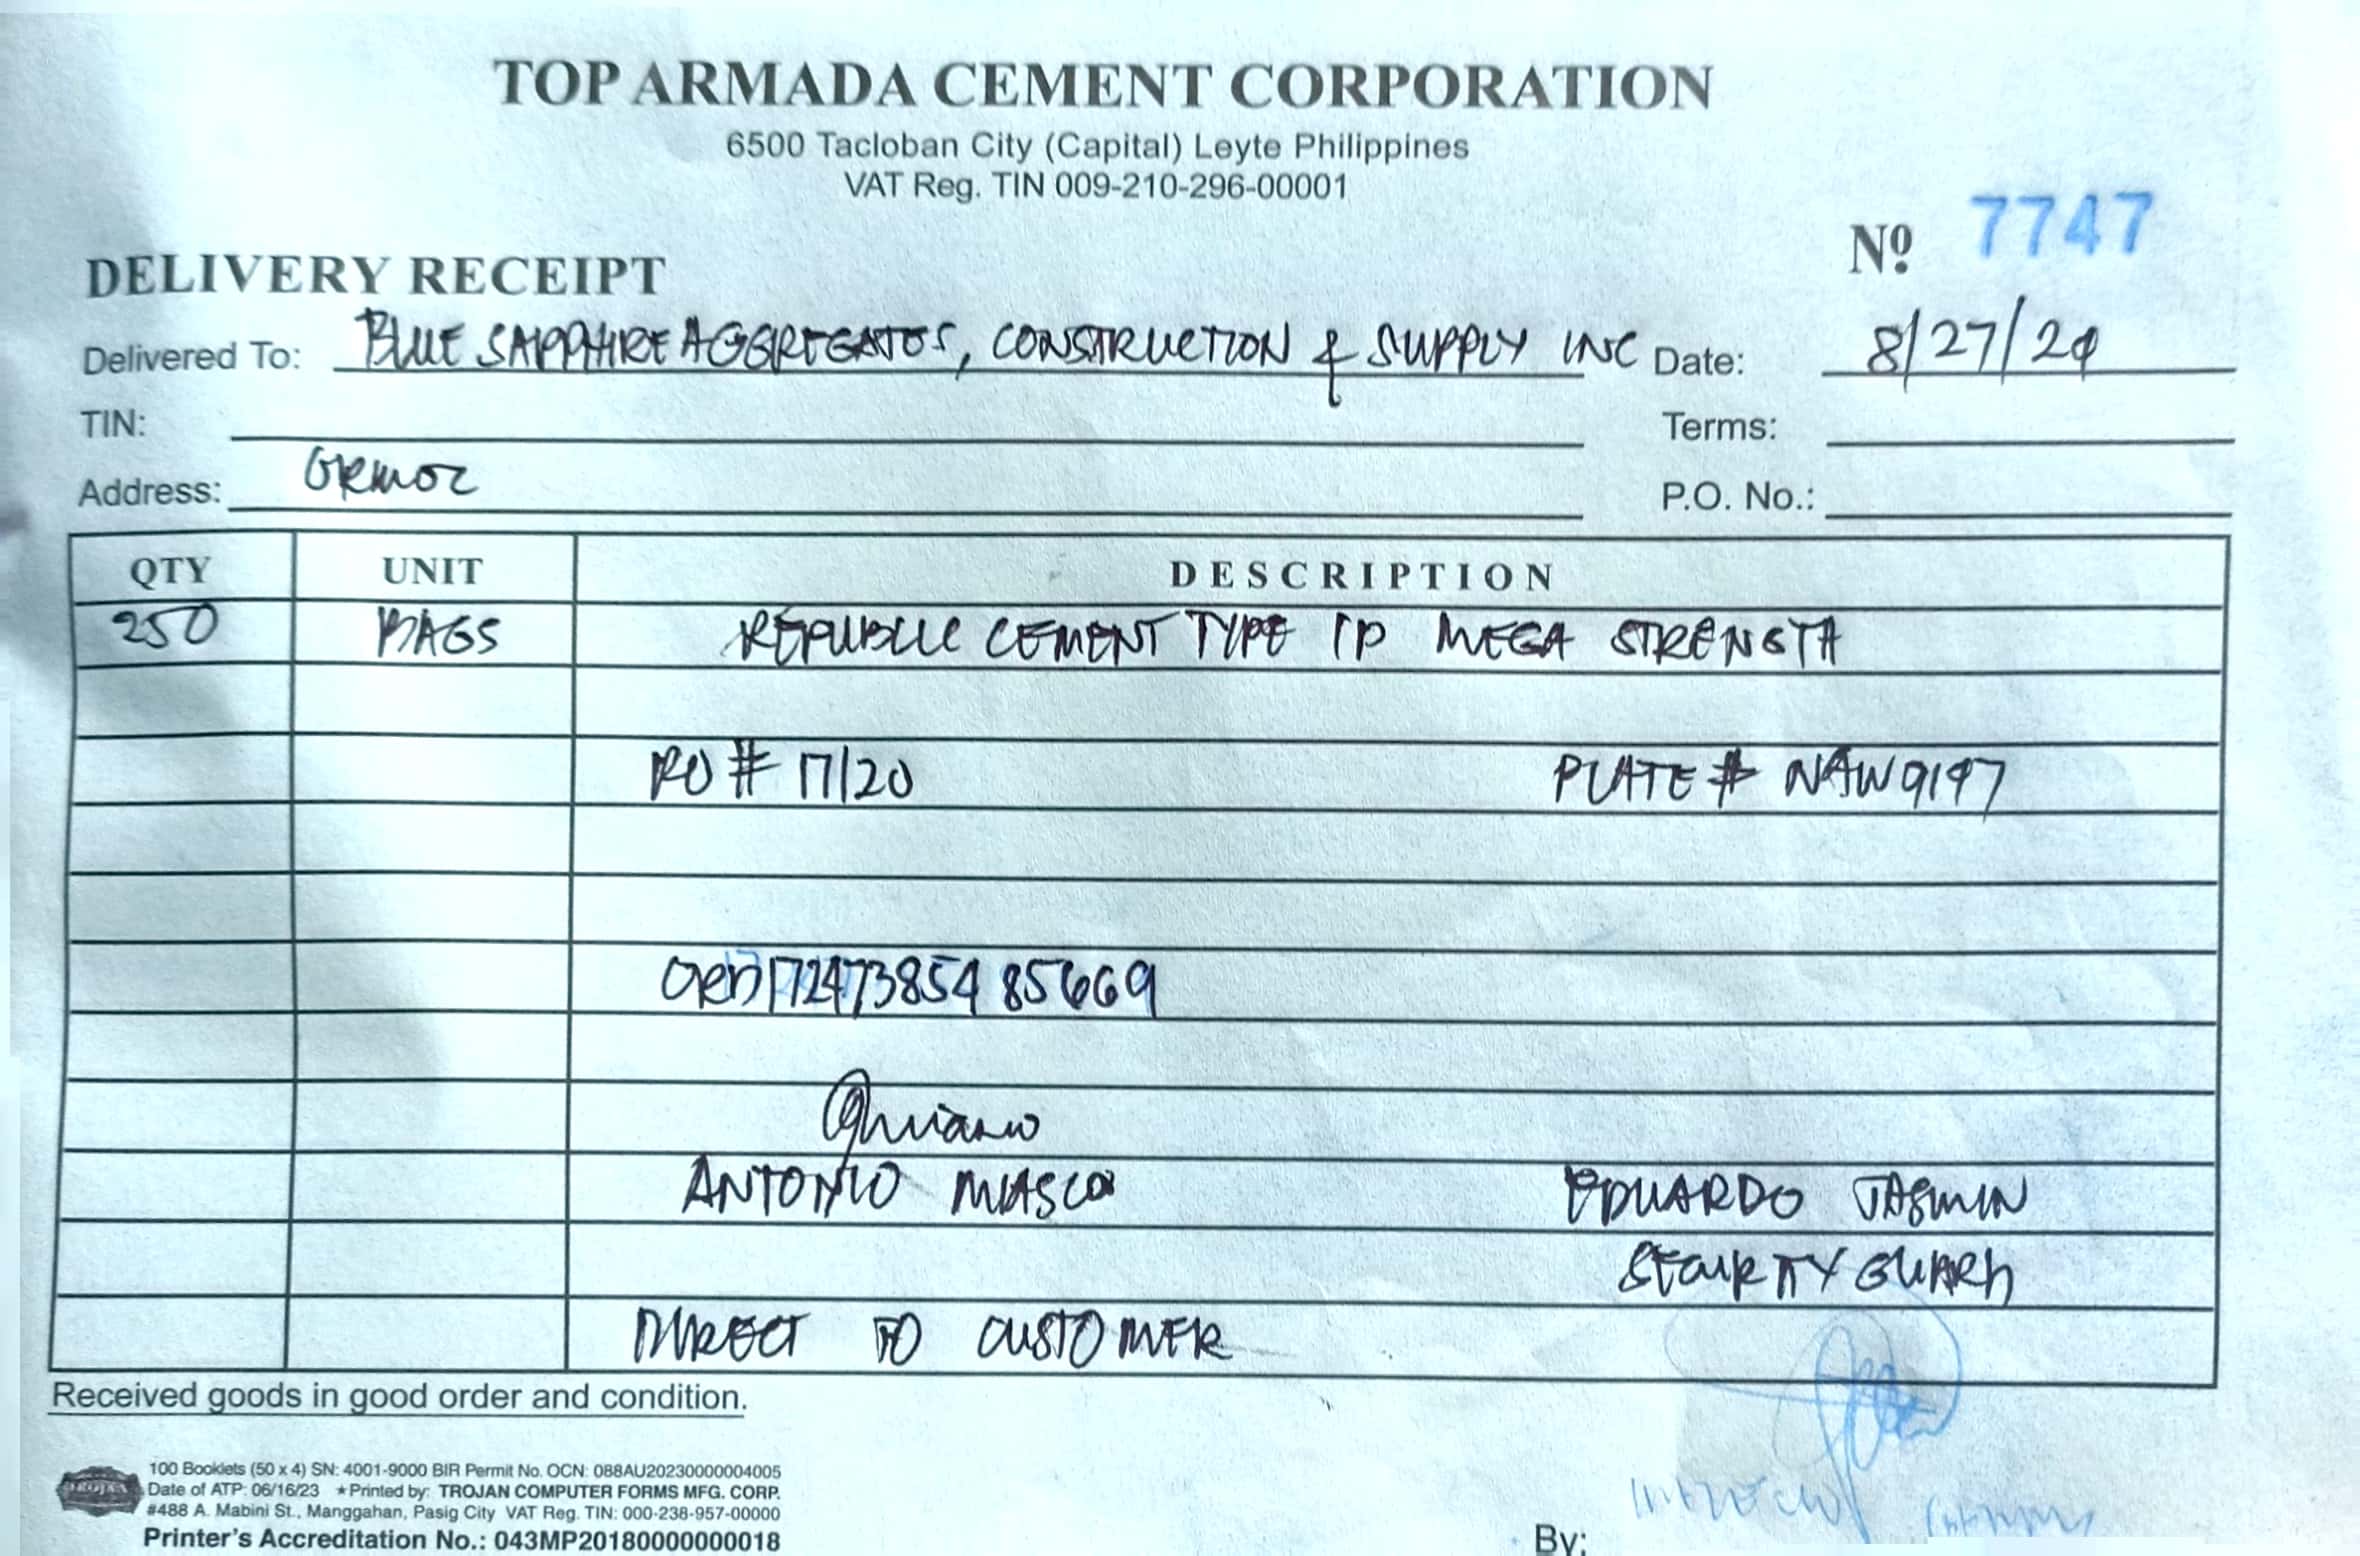 TOP ARMADA CEMENT CORPORATION
6500 Tacloban City (Capital) Leyte Philippines
VAT Reg. TIN 009-210-296-00001
Nº 7747
DELIVERY RECEIPT
Delivered To: BLUE SAPPHIRE AGGREGATES, CONSTRUCTION & SUPPLY INC Date: 8/27/24
TIN: Terms:
Address: ORMOC P.O. No.:
QTY UNIT DESCRIPTION
250 BAGS REPUBLIC CEMENT TYPE 1P MEGA STRENGTH
RO # 17120 PLATE # NAW9197
ORD17247385485669
ANTONIO MIASCO EDUARDO JASMIN
SECURITY GUARD
DIRECT TO CUSTOMER
Received goods in good order and condition.
TROJAN
100 Booklets (50 x 4) SN: 4001-9000 BIR Permit No. OCN: 088AU20230000004005
Date of ATP: 06/16/23 ★Printed by: TROJAN COMPUTER FORMS MFG. CORP.
#488 A. Mabini St., Manggahan, Pasig City VAT Reg. TIN: 000-238-957-00000
Printer's Accreditation No.: 043MP20180000000018
By: